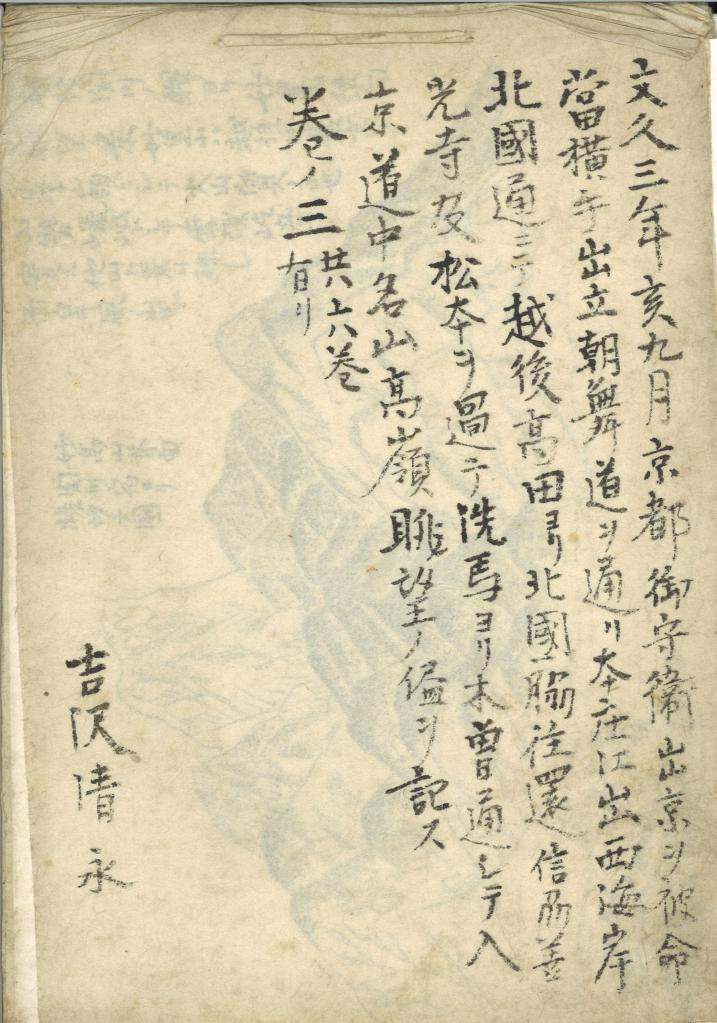 文久三年亥九月京都御守衛出京ヲ被命
當横手出立朝舞道ヲ通リ本庄江出西海岸
北國通ニテ越後高田ヨリ北國脇往還信州善
光寺及松本ヲ過テ洗馬ヨリ木曽通シテ入
京道中名山高嶺眺望ノ侭ヲ記ス
巻ノ三
共六巻
有リ
吉沢清永